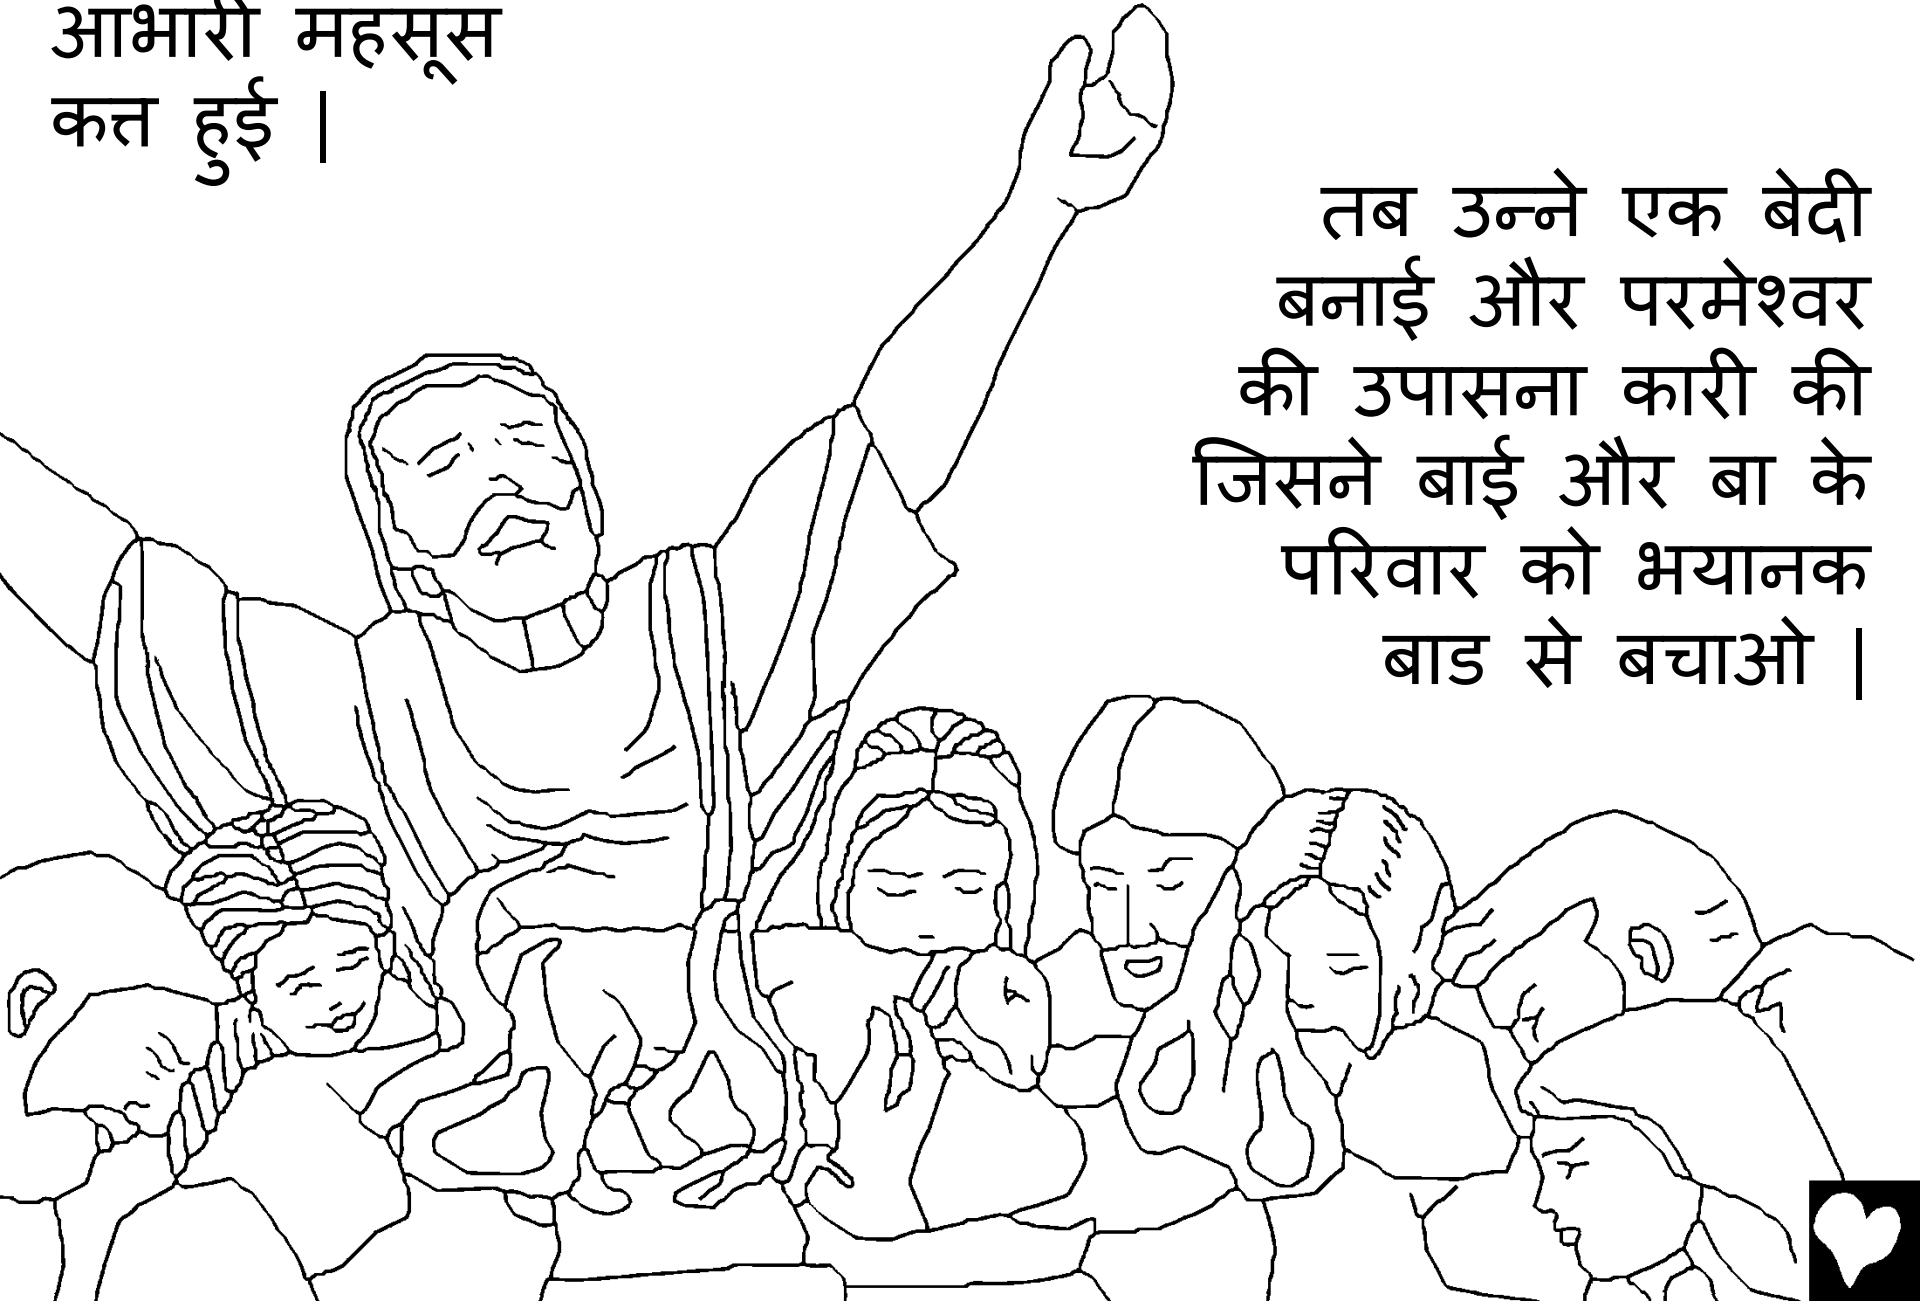 आभारी महसूस
कत्त हुई |
तब उन्ने एक बेदी
बनाई और परमेश्वर
की उपासना कारी की
जिसने बाई और बा के
परिवार को भयानक
बाड से बचाओ |